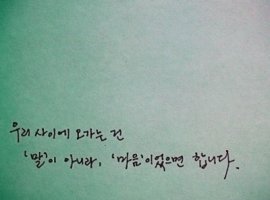 우리 사이에 오가는 건
'말'이 아니라, '마음'이었으면 합니다.